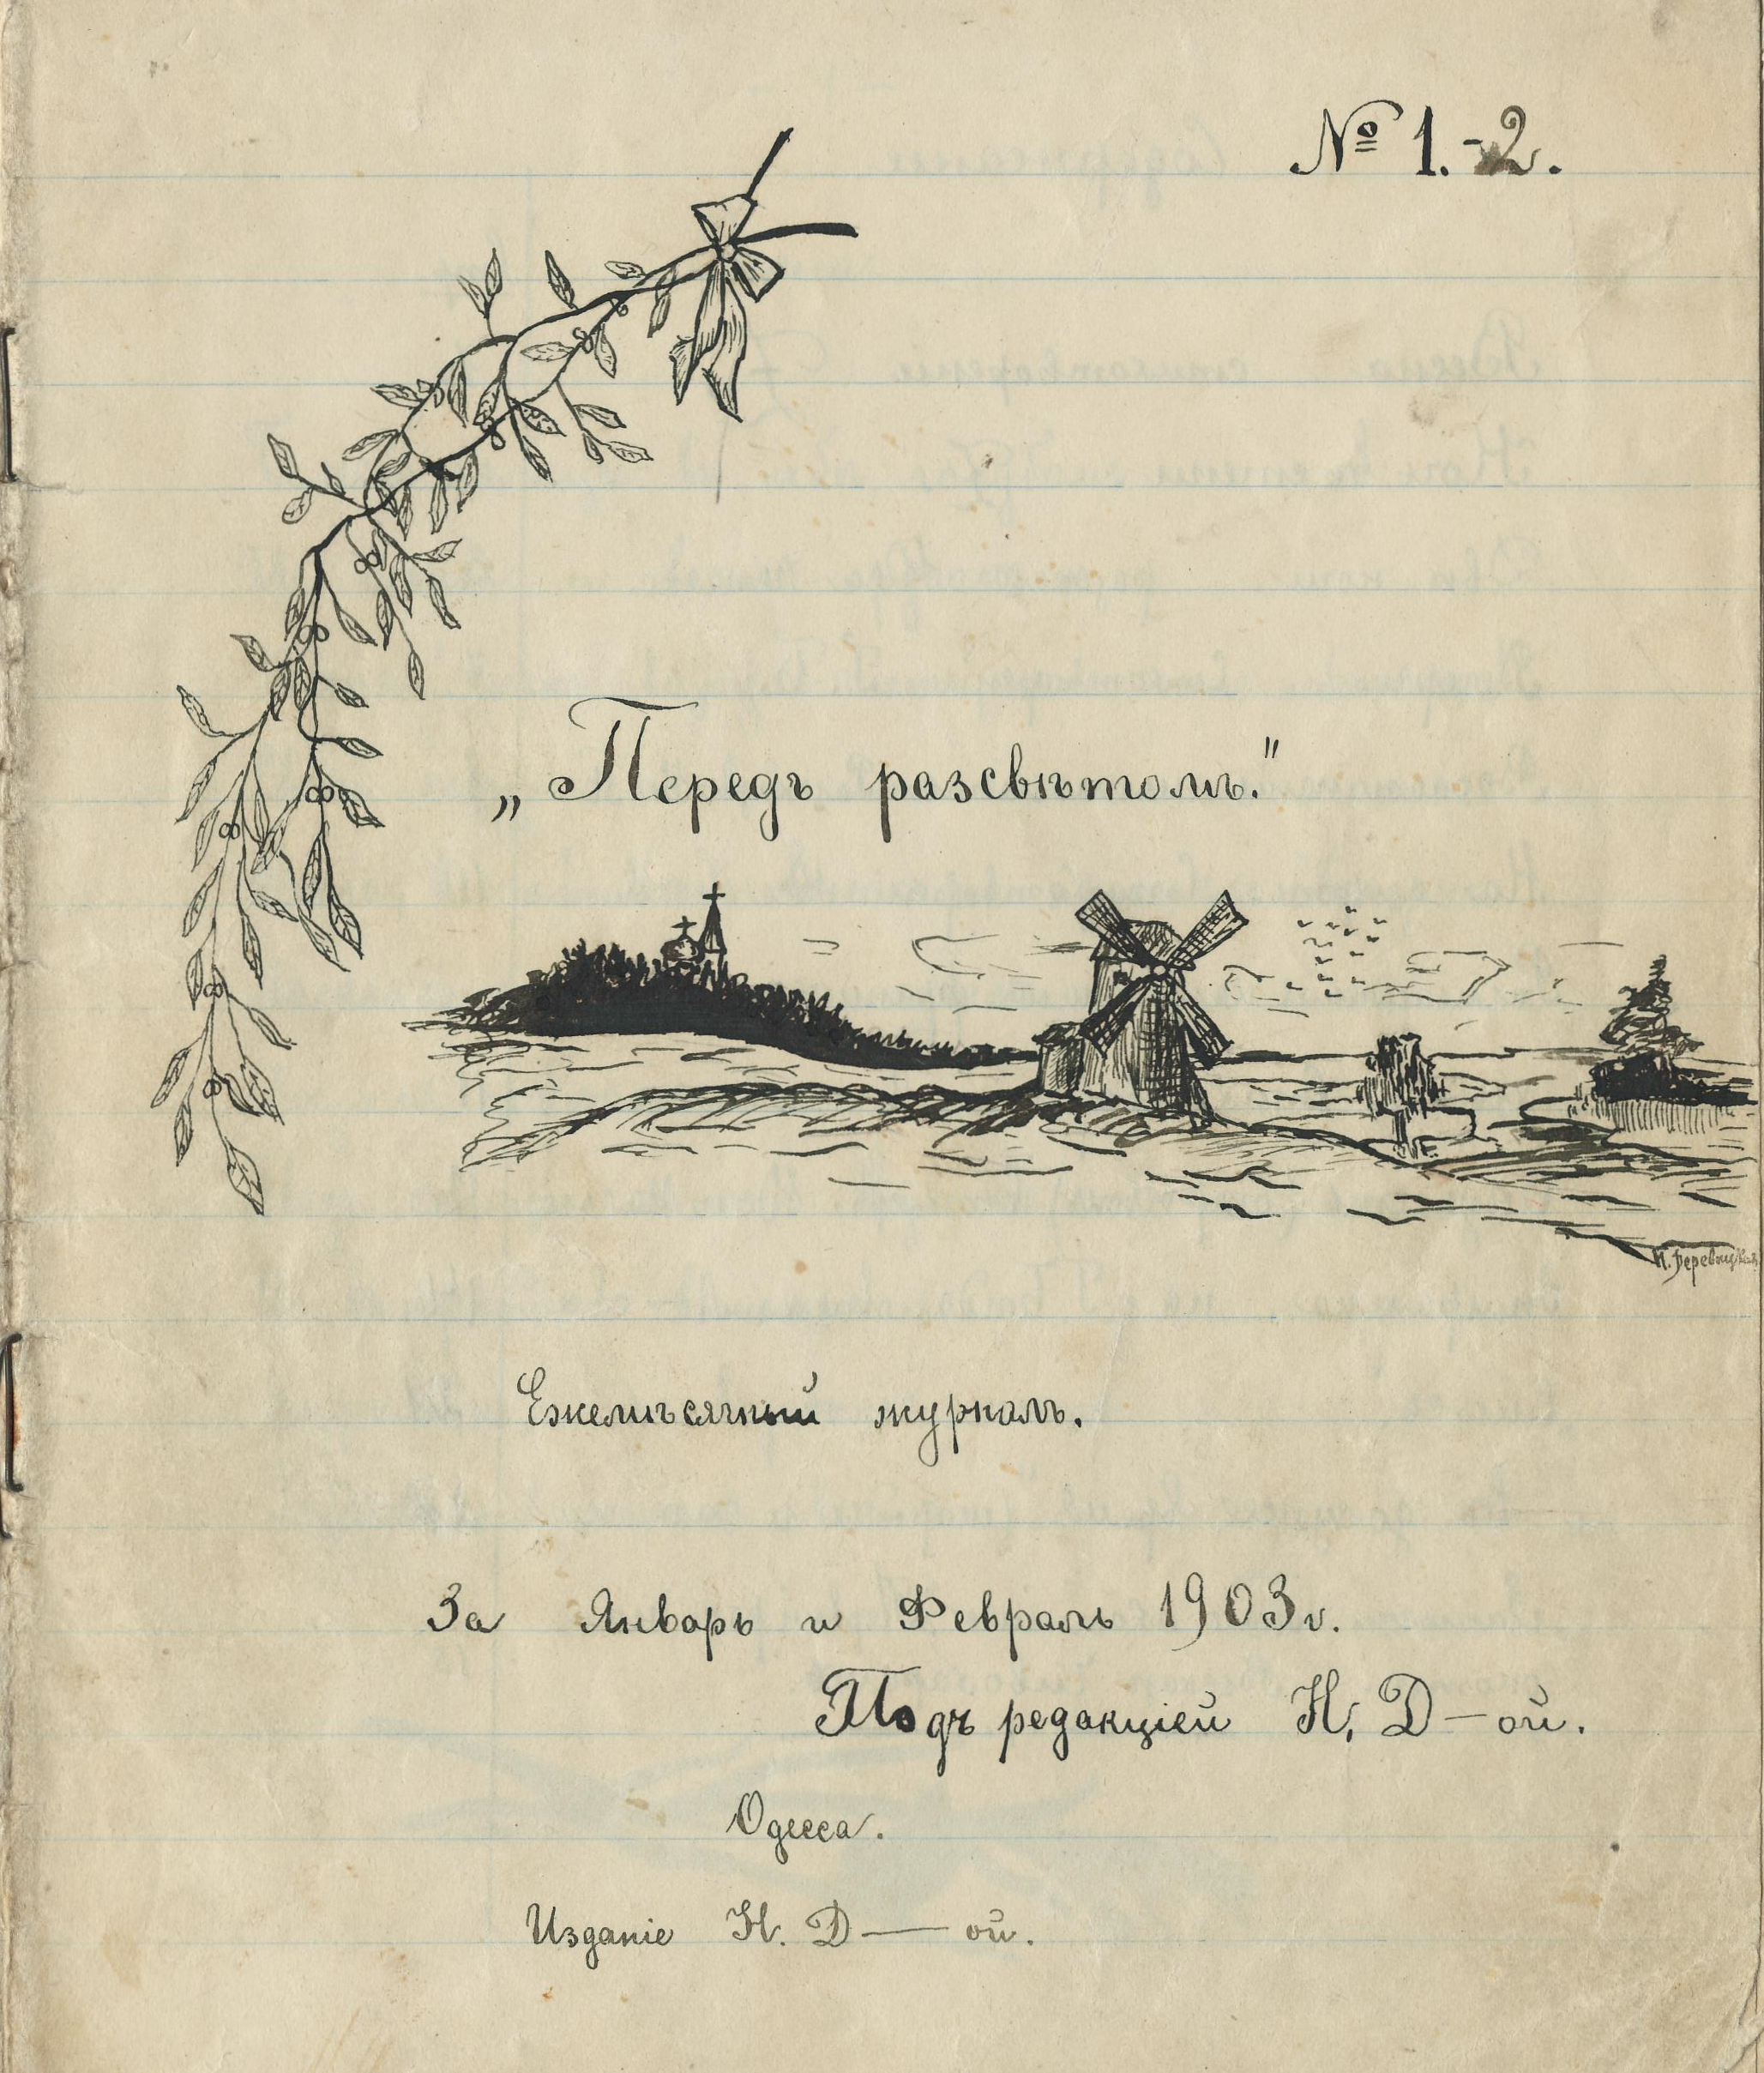 № 1.-2.
„Передъ разсвѣтомъ."
Н. Деревицкая
Ежемѣсячный журналъ.
За Январь и Февраль 1903 г.
Подъ редакціей Н. Д—ой.
Одесса.
Изданіе Н. Д—ой.